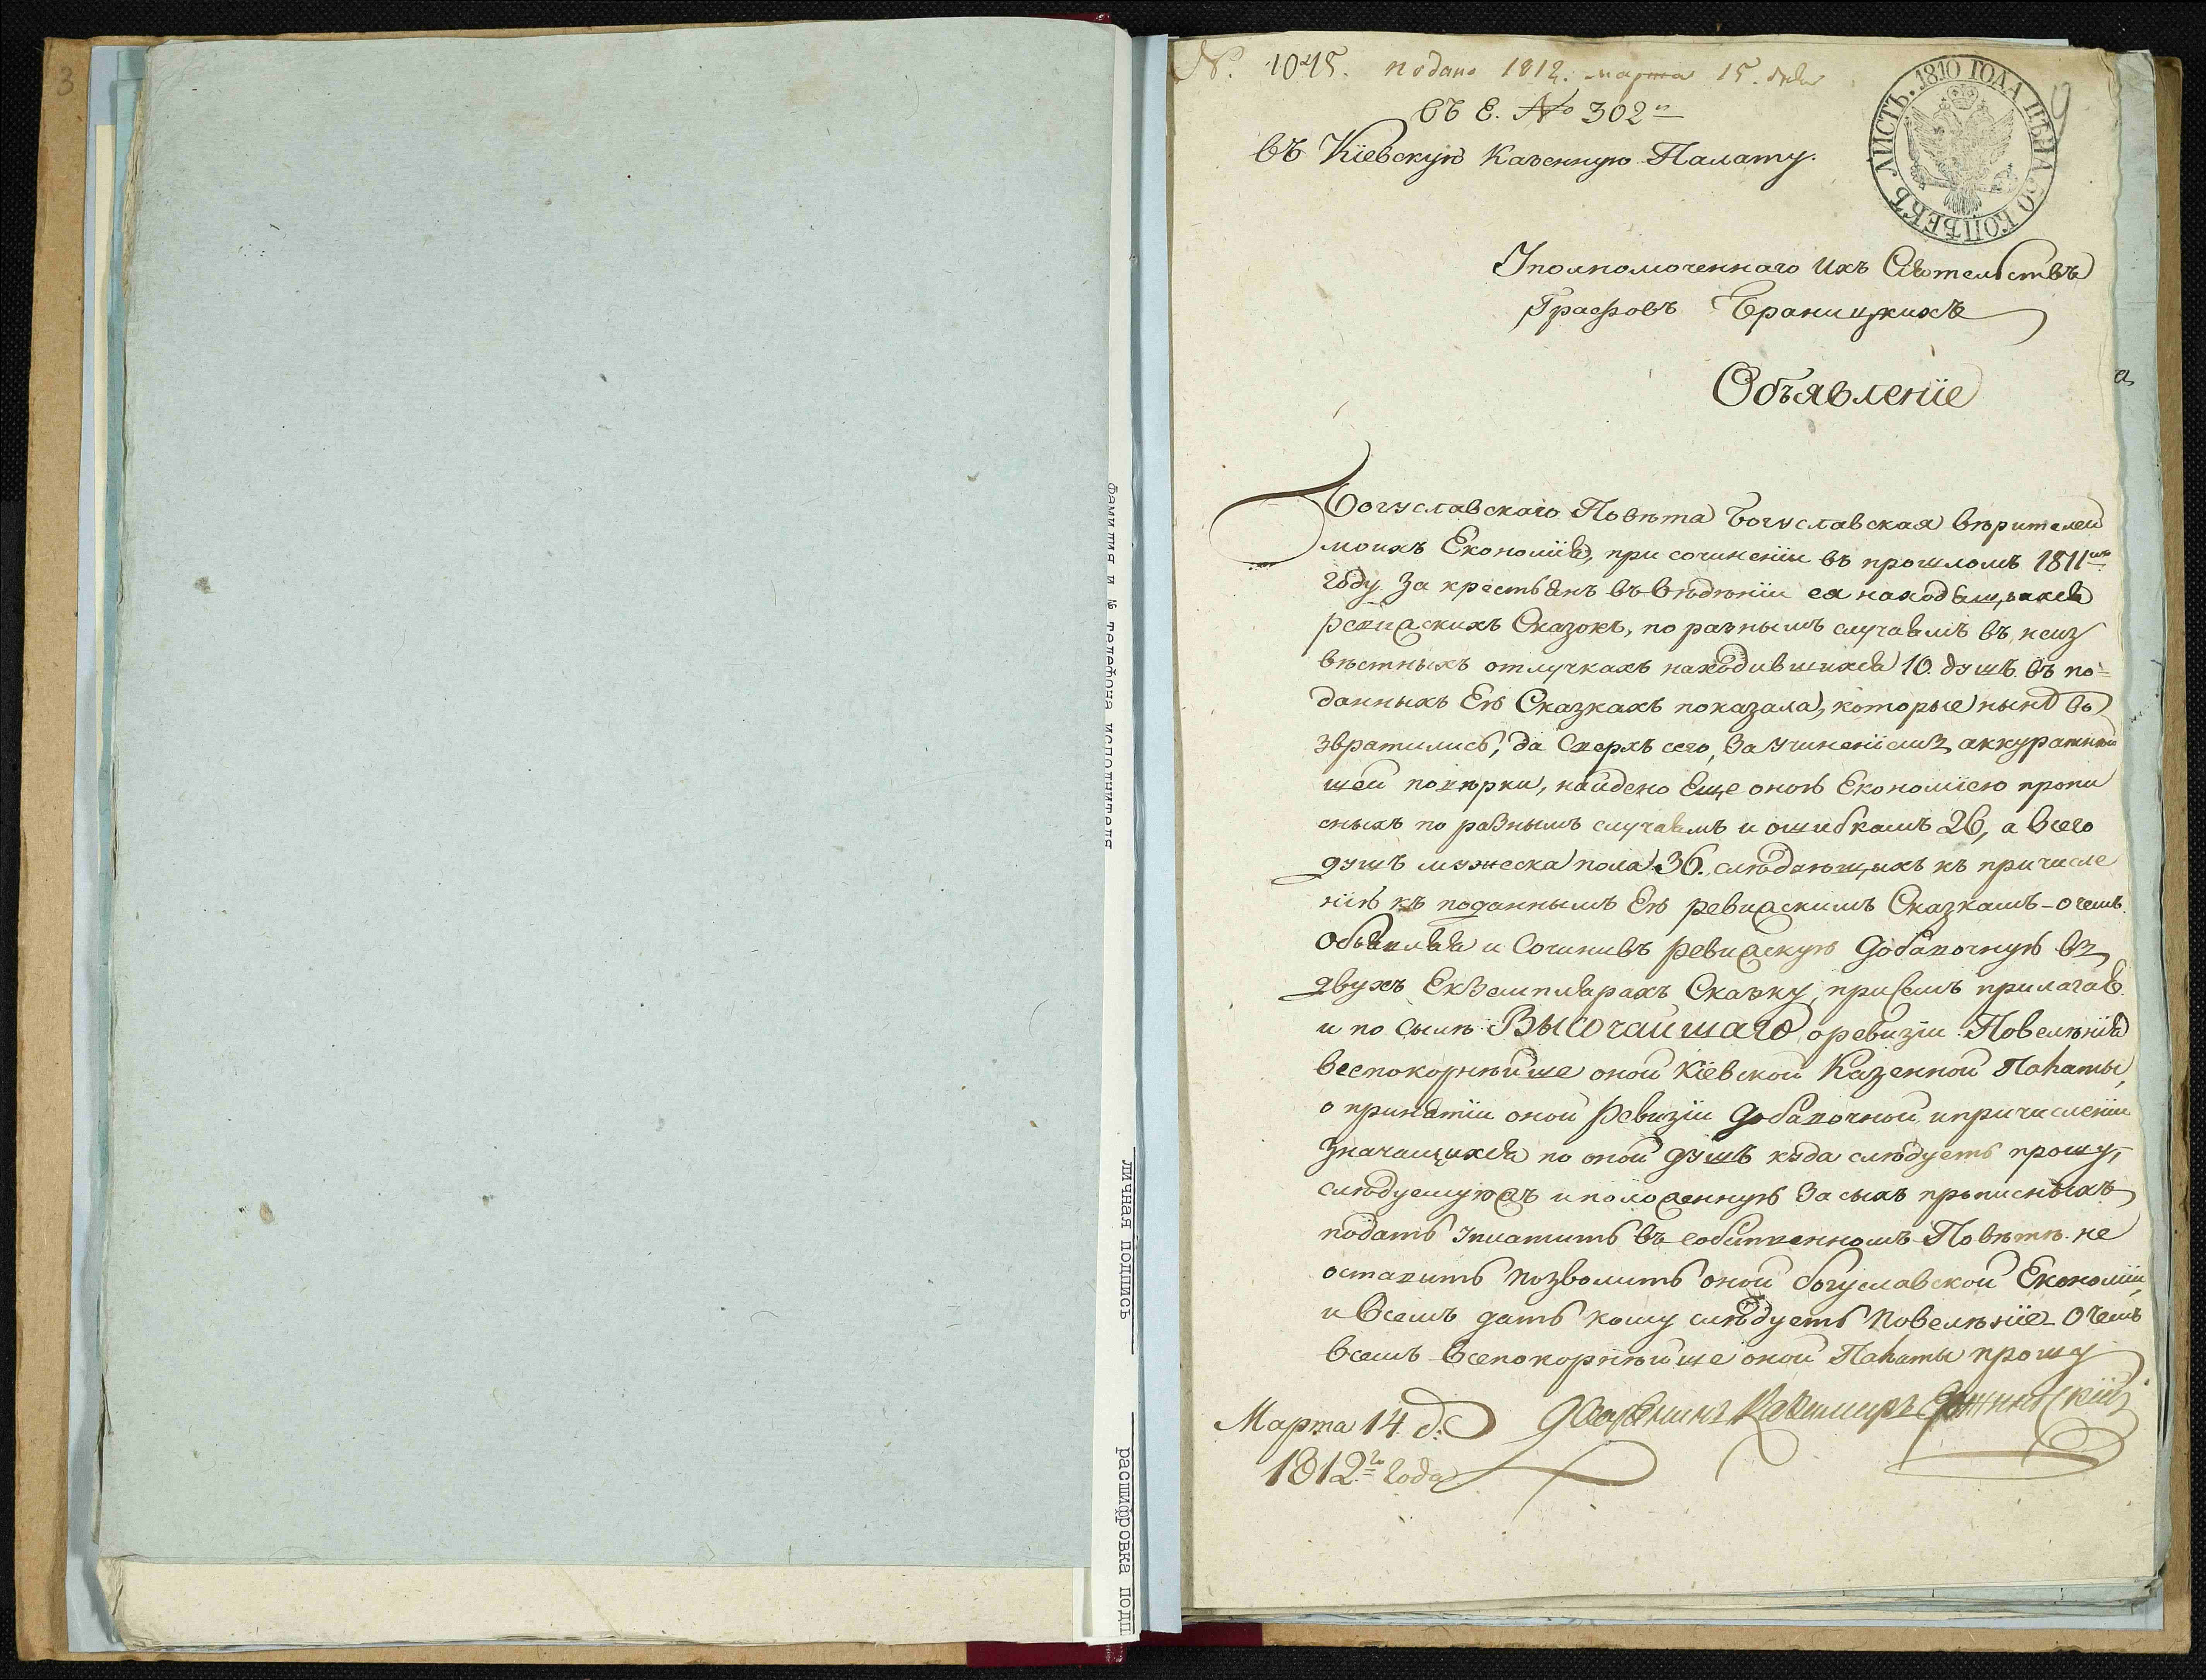 3
фамилия и № телефона исполнителя
личная подпись
расшифровка подп
№. 1045. подано 1812. марта 15. дня
въ Е. № 302
въ Кіевскую Казенную Палату.
ЛИСТЪ. 1810 ГОДА ЦѢНА 50 КОПѢЕКЪ
9
Уполномоченнаго Ихъ Сіятельствъ
Графовъ Браницкихъ
Объявленіе
Богуславскаго Повѣта Богуславская вѣрителей
моихъ Економія, при сочиненіи въ прошломъ 1811мъ
году за крестьянъ въ вѣдѣніи ея находящихся
ревизскихъ Сказокъ, по разнымъ случаямъ въ неиз
вѣстныхъ отлучкахъ находившихся 10. душъ въ по=
данныхъ Ею Сказкахъ показала, которые нынѣ во
звратились, да Сверхъ сего, За учиненіемъ аккуратнѣй
шей повѣрки, найдено Еще оною Економіею пропи
сныхъ по разнымъ случаямъ и ошибкамъ 26, а всего
душъ мужеска пола 36. слѣдующихъ къ причисле
нію къ поданнымъ Ею ревизскимъ Сказкамъ - о чемъ
объявляя и Сочинивъ ревизскую добавочную въ
двухъ Екземплярахъ Сказку, присемъ прилагая
и по сылѣ Высочайшаго о ревизіи Повелѣнія
всепокорнѣйше оной Кіевской Казенной Палаты,
о принятіи оной Ревизіи добавочной и причисленіи
значащихся по оной душъ куда слѣдуетъ прошу,
слѣдуемуюжъ и положенную за сихъ прописныхъ
подать уплатить въ собственномъ Повѣтѣ не
оставить позволить оной богуславской Економіи,
и Всемъ дать кому слѣдуетъ повелѣніе - О чемъ
всемъ Всепокорнѣйше оной Палаты прошу
Марта 14 д.
Дворенинъ Казимиръ
1812го года